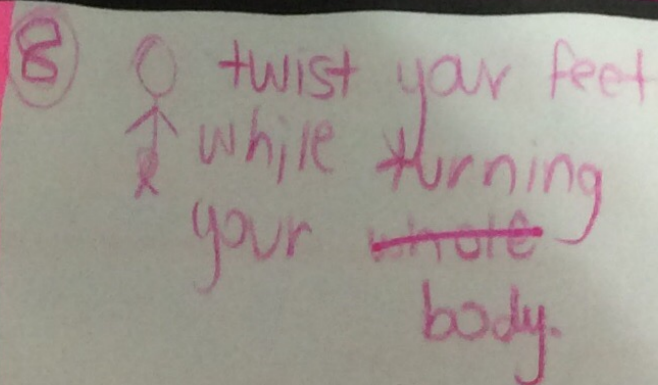 8 twist your feet
while turning
your whole
body.